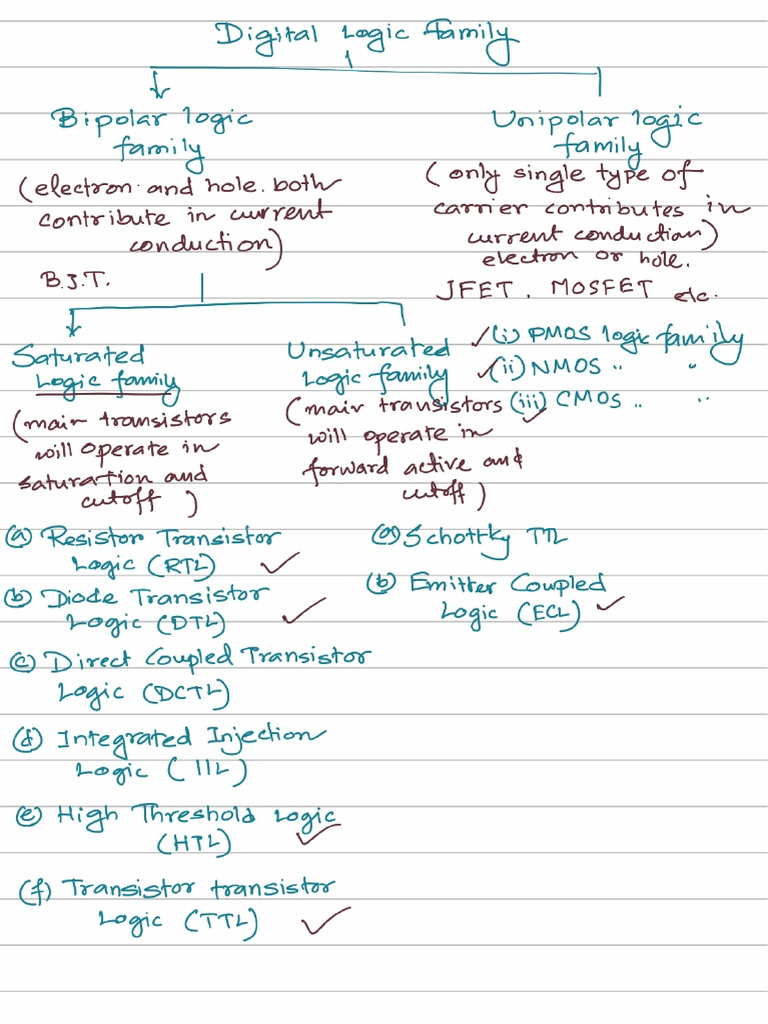 Digital Logic Family
Bipolar logic
family
(electron and hole both
contribute in current
conduction)
B.J.T.
Unipolar logic
family
(only single type of
carrier contributes in
current conduction)
electron or hole.
JFET, MOSFET etc.
(i) PMOS logic family
(ii) NMOS " "
(iii) CMOS " "
Saturated
Logic family
(main transistors
will operate in
saturation and
cutoff)
Unsaturated
Logic family
(main transistors
will operate in
forward active and
cutoff)
(a) Resistor Transistor
Logic (RTL)
(b) Diode Transistor
Logic (DTL)
(c) Direct Coupled Transistor
Logic (DCTL)
(d) Integrated Injection
Logic (IIL)
(e) High Threshold Logic
(HTL)
(f) Transistor transistor
Logic (TTL)
(a) Schottky TTL
(b) Emitter Coupled
Logic (ECL)